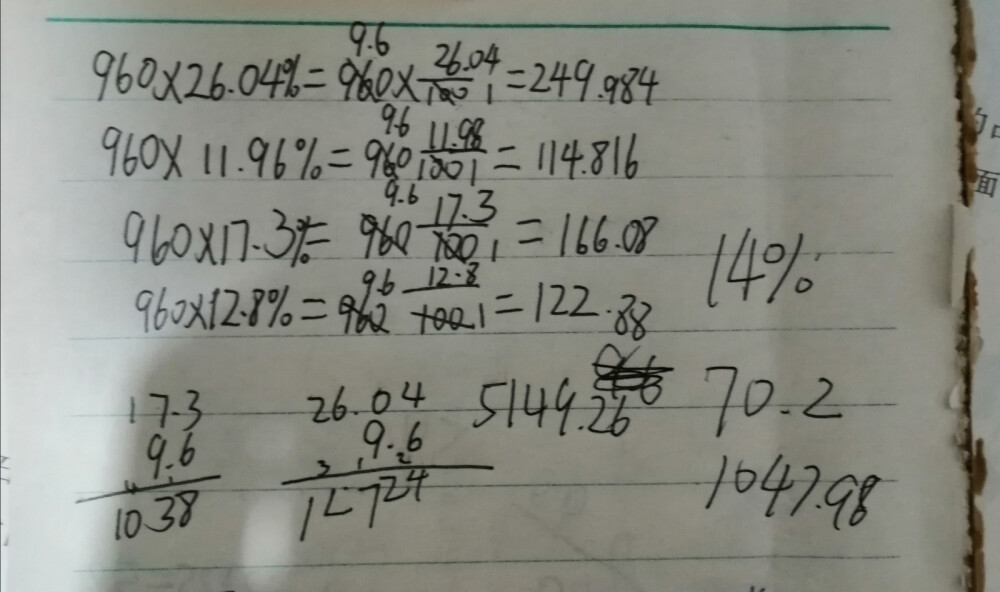 960×26.04%=960×26.04/100=249.984
9.6
1
960×11.96%=960 11.98/100=114.816
9.6
1
960×17.3%=960 17.3/100=166.08
9.6
1
14%
960×12.8%=960 12.8/100=122.88
9.6
1
17.3
9.6
1038
26.04
9.6
15724
5149.26
70.2
1047.98